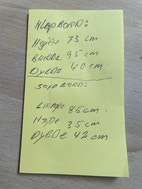 KLAPBORD:
HØJDE 73 cm
BREDDE 95 cm
DYBDE 40 cm
SOFABORD:
LÆNGDE 86 cm
HØJDE 35 cm
DYBDE 42 cm